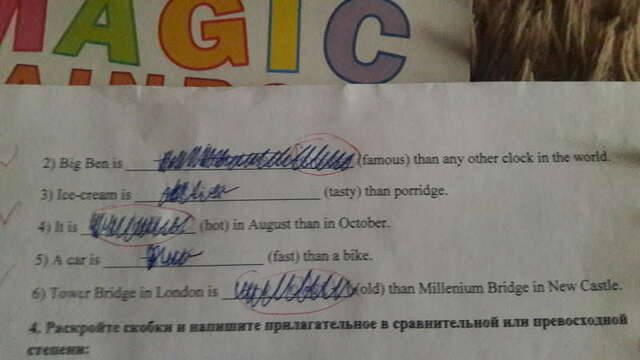 MAGIC
2) Big Ben is (famous) than any other clock in the world.
3) Ice-cream is (tasty) than porridge.
4) It is (hot) in August than in October.
5) A car is (fast) than a bike.
6) Tower Bridge in London is (old) than Millenium Bridge in New Castle.
4. Раскройте скобки и напишите прилагательное в сравнительной или превосходной
степени: